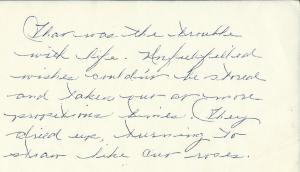 (That was the trouble
with life. Unfulfilled
wishes couldn't be stored
and taken out at more
propitious times. They
dried up, turning to
straw like cut roses.